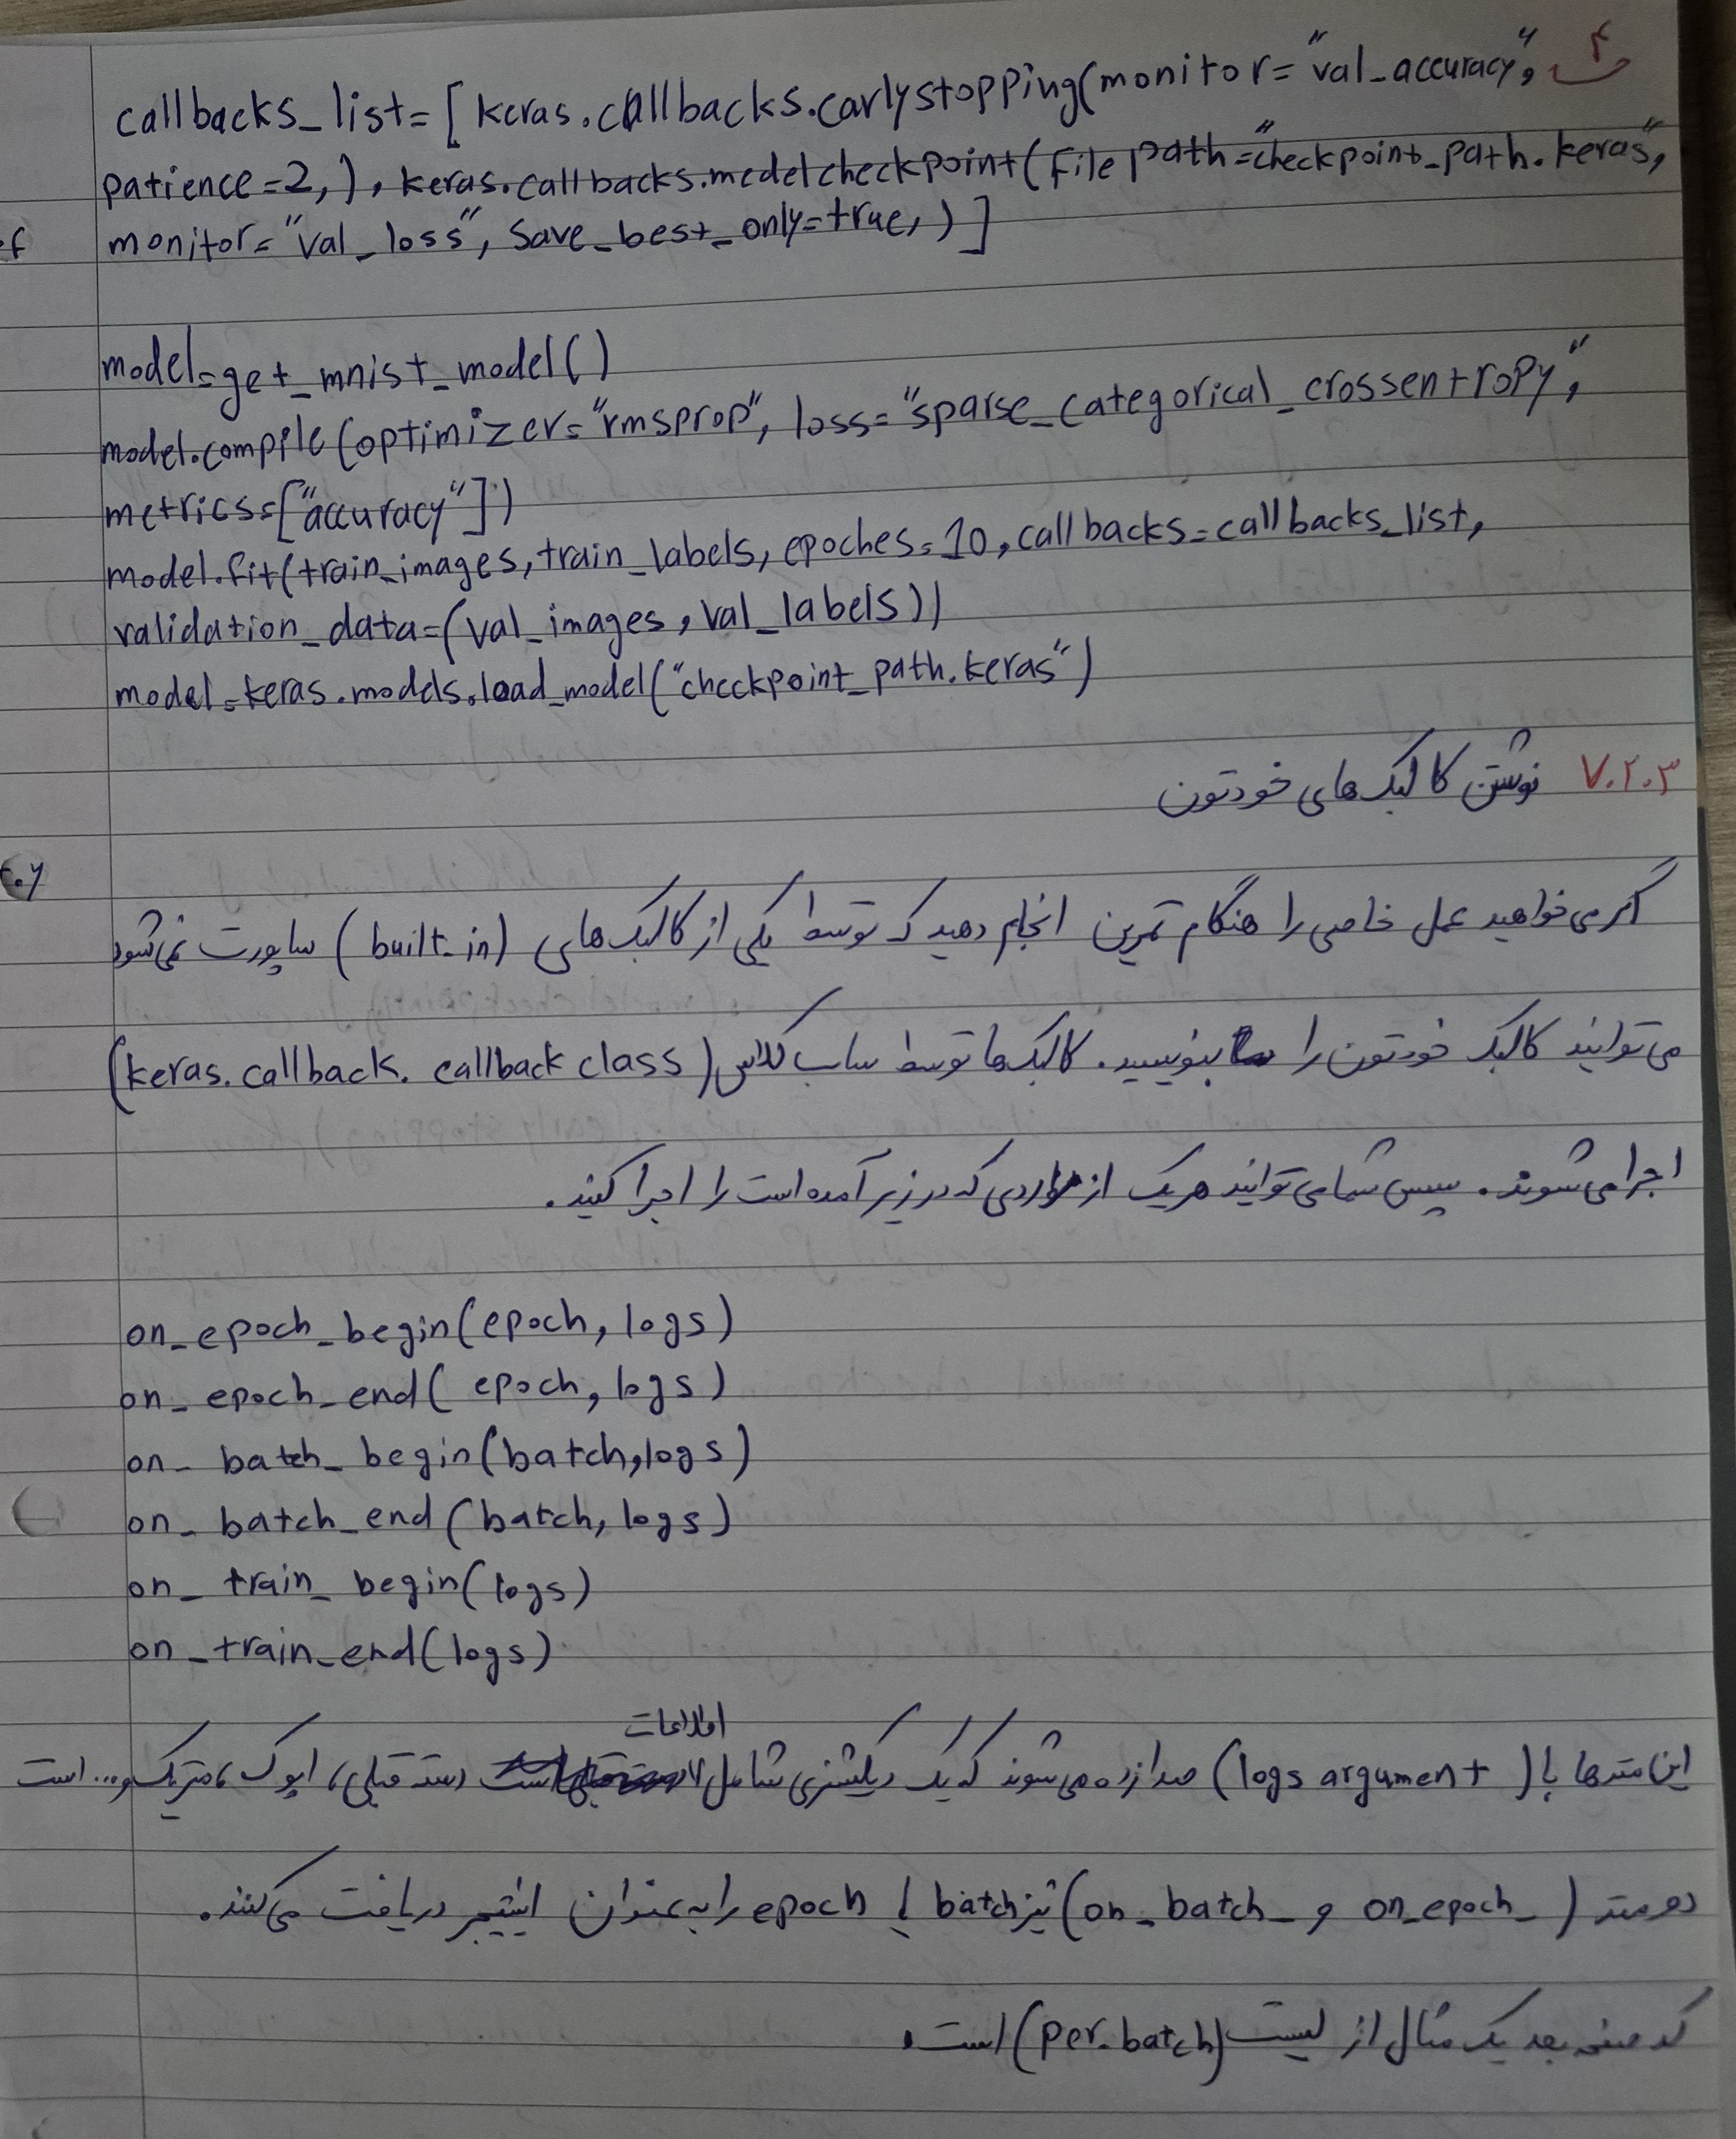 ۴
callbacks_list=[keras.callbacks.earlystopping(monitor="val_accuracy",
patience=2,), keras.callbacks.modelcheckpoint(file path="checkpoint_path.keras",
monitor="val_loss", save_best_only=true,)]
model=get_mnist_model()
model.compile(optimizer="rmsprop", loss="sparse_categorical_crossentropy",
metrics=["accuracy"])
model.fit(train_images, train_labels, epoches=10, callbacks=callbacks_list,
validation_data=(val_images, val_labels))
model=keras.models.load_model("checkpoint_path.keras")
۷.۲.۳ نوشتن کالبک های خودتون
اگر می خواهید عمل خاصی را هنگام تمرین انجام دهید که توسط یکی از کالبک های (built-in) ساپورت نمی شود
می توانید کالبک خودتون را بنویسید. کالبک ها توسط ساب کلاس (keras.callback. callback class)
اجرا می شوند. سپس شما می توانید هر یک از مواردی که در زیر آمده است را اجرا کنید.
on_epoch_begin(epoch, logs)
on_epoch_end(epoch, logs)
on_batch_begin(batch, logs)
on_batch_end(batch, logs)
on_train_begin(logs)
on_train_end(logs)
این متدها با (logs argument) صدا زده می شوند که یک دیکشنری شامل اطلاعات دسته قبلی، اپوک، متریک و... است
دو متد (on_epoch_ و on_batch_) نیز batch یا epoch را به عنوان اینتیجر دریافت می کنند.
کد صفحه بعد یک مثال از لیست (per-batch) است.